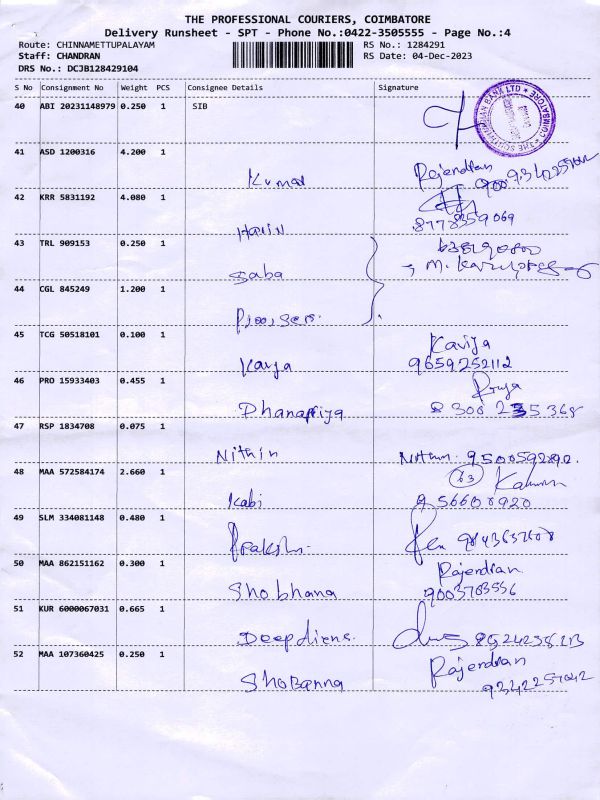 THE PROFESSIONAL COURIERS, COIMBATORE
Delivery Runsheet - SPT - Phone No.:0422-3505555 - Page No.:4
Route: CHINNAMETTUPALAYAM RS No.: 1284291
Staff: CHANDRAN RS Date: 04-Dec-2023
DRS No.: DCJB128429104
S No Consignment No Weight PCS Consignee Details Signature
40 ABI 20231148979 0.250 1 SIB
THE SOUTH INDIAN BANK LTD * COIMBATORE
41 ASD 1200316 4.200 1
Kumar Rajendran
42 KRR 5831192 4.080 1
Harin 8778359069
43 TRL 909153 0.250 1
Baba
44 CGL 845249 1.200 1
45 TCG 50518101 0.100 1 Kavija
Kavya 9659252112
46 PRO 15933403 0.455 1 Priya
Dhanapriya 8300235368
47 RSP 1834708 0.075 1
Nithin Nithin 9500592892.
48 MAA 572584174 2.660 1 63
Kabi
49 SLM 334081148 0.480 1
Prakash.
50 MAA 862151162 0.300 1 Rajendran
Shobhana 9003703556
51 KUR 6000067031 0.665 1
52 MAA 107360425 0.250 1 Rajendran
Shobanna 9342257042